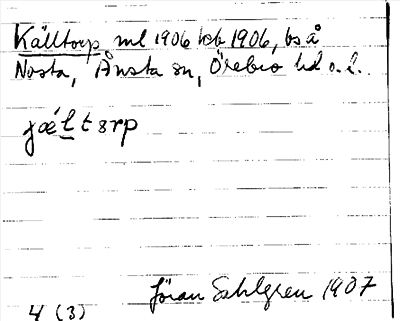 Källtorp ml 1906 kb 1906, bs å
Norta, Ånsta sn, Örebro hd o. l.
jæ´ltsrp
Jöran Sahlgren 1907
4 (3)